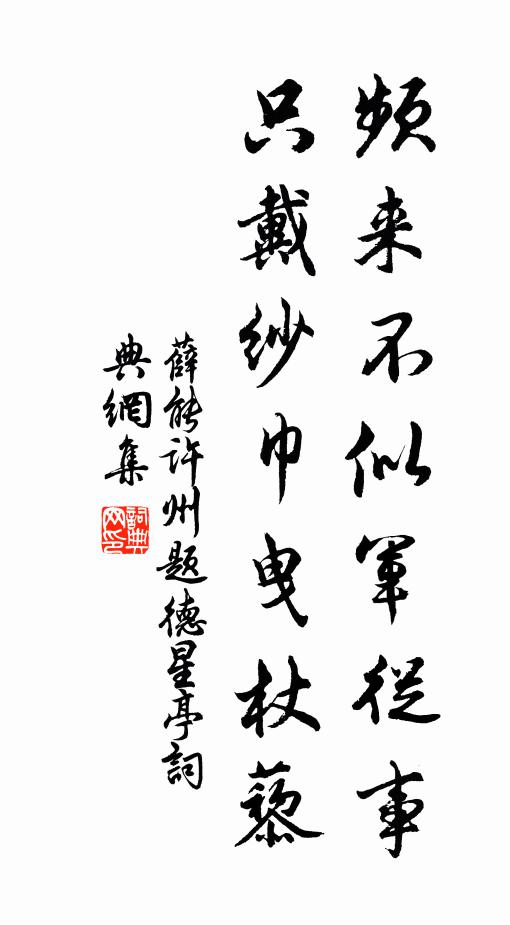 频来不似军从事
只戴纱巾曳杖藜
薛能许州题德星亭词
典网集
词典网印